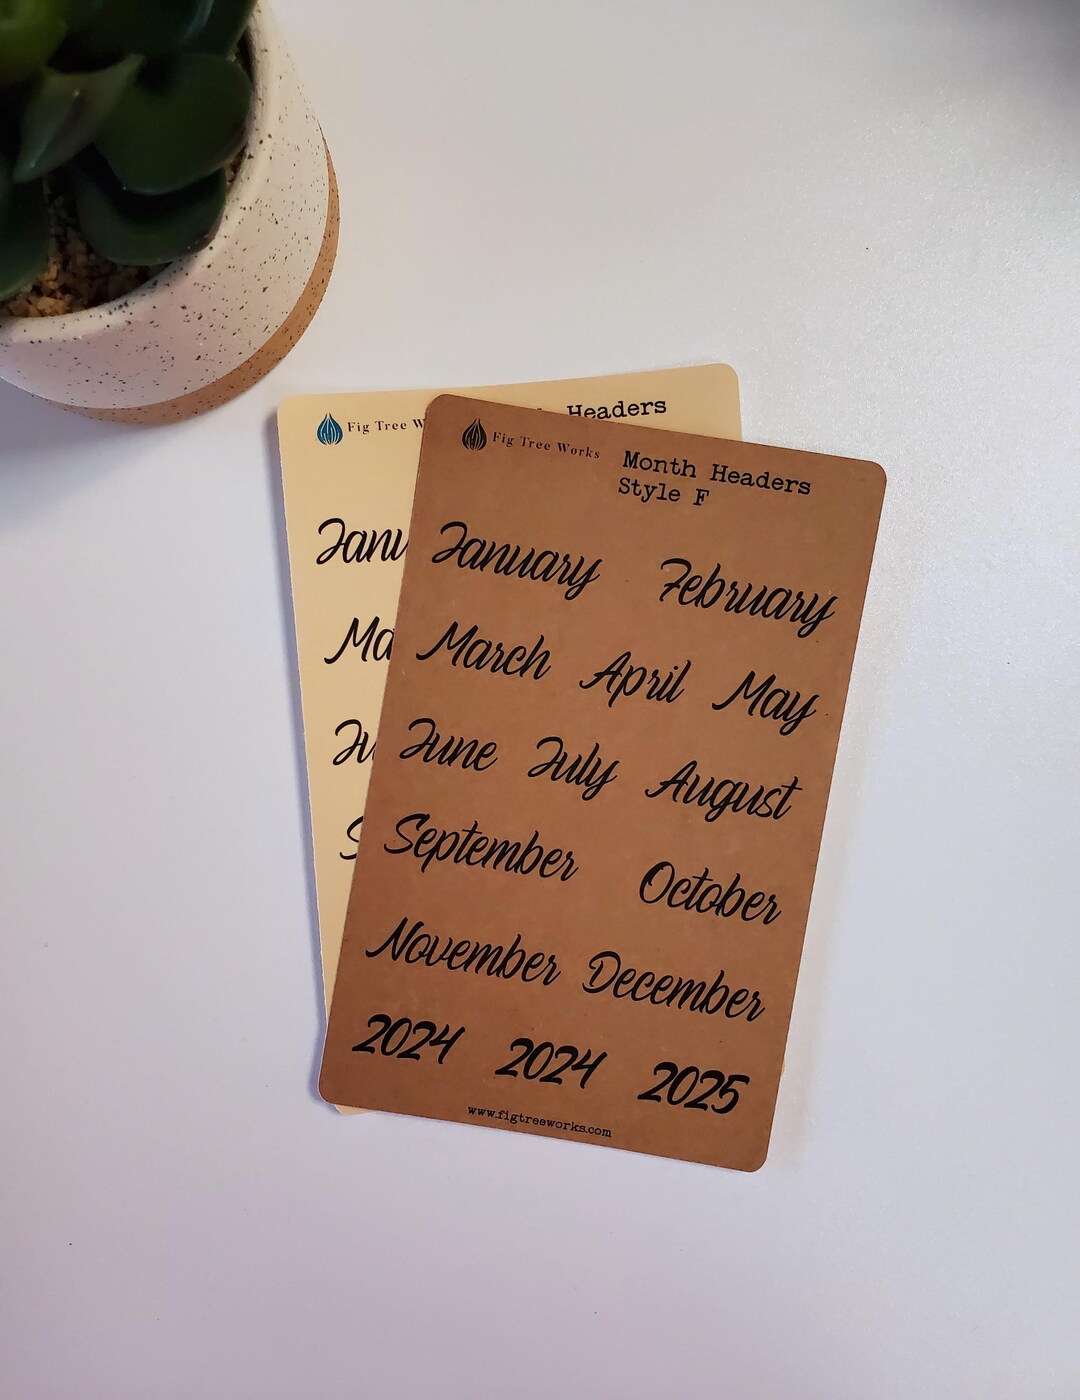 Fig Tree
Headers
Janu
Ma
Ju
S
Fig Tree Works
Month Headers
Style F
January February
March April May
June July August
September October
November December
2024 2024 2025
www.figtreeworks.com